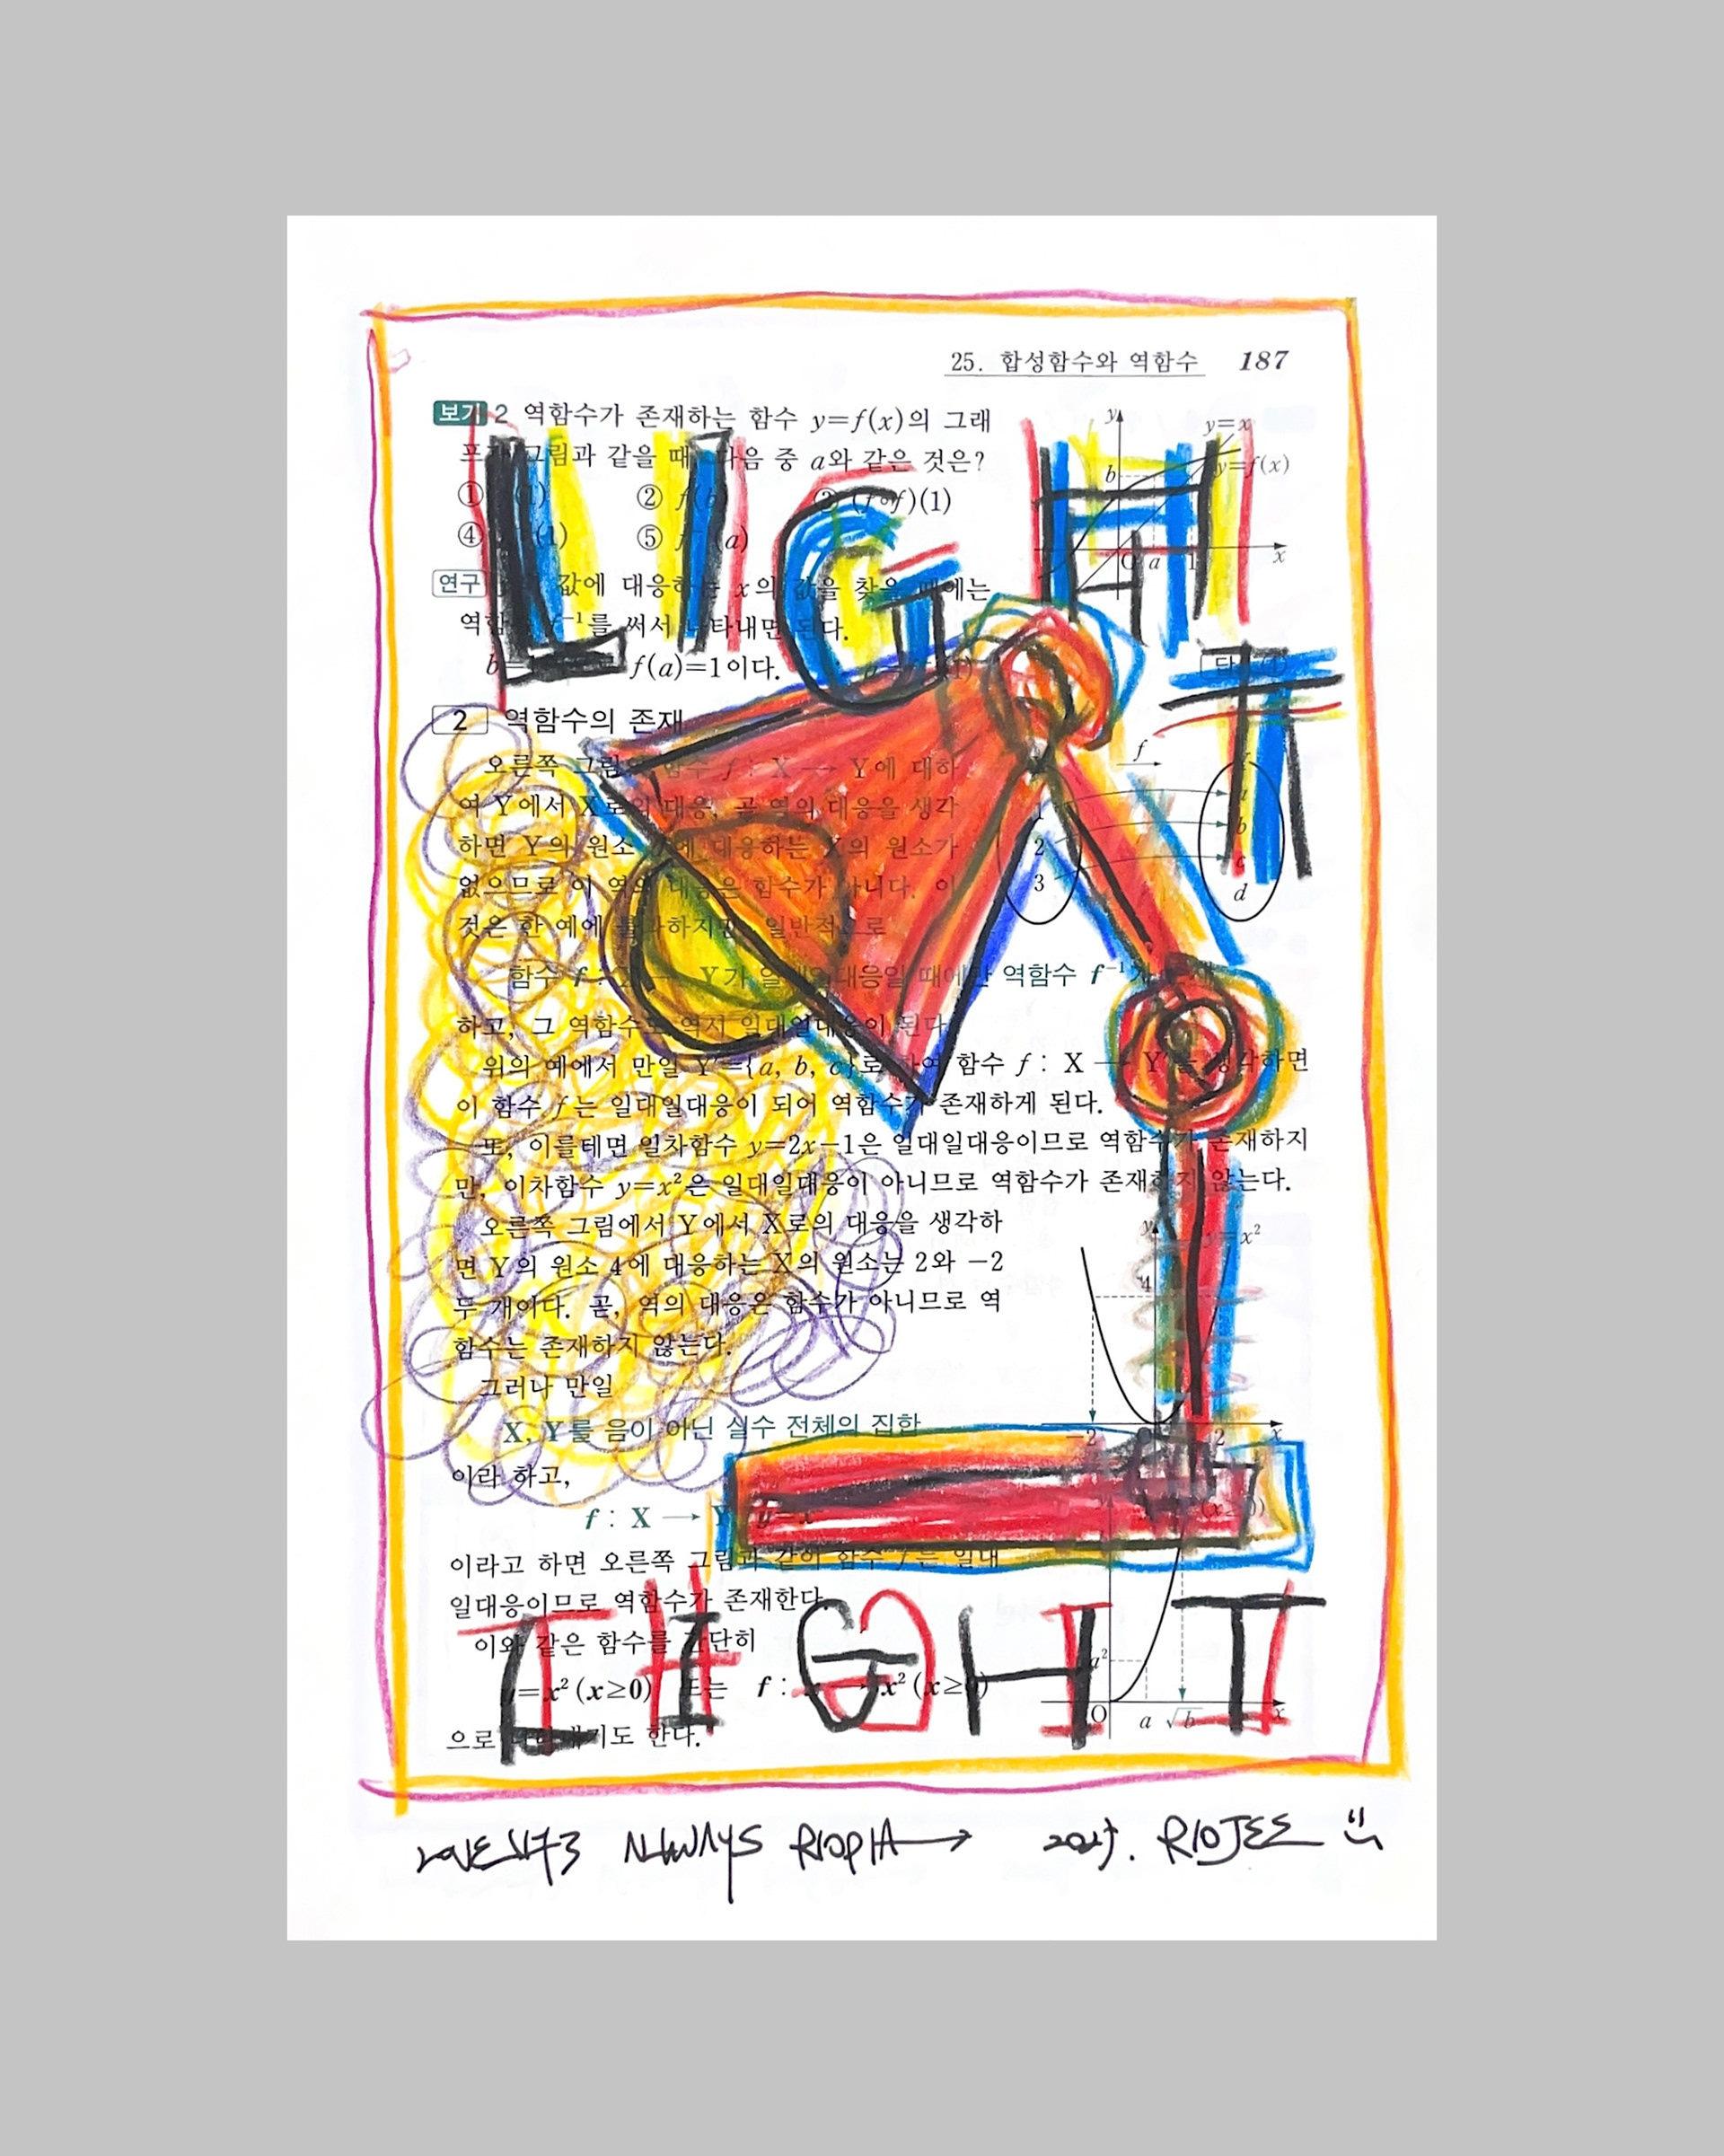 25. 합성함수와 역함수 187
보기 2 역함수가 존재하는 함수 y=f(x)의 그래
그림과 같을 때, 다음 중 a와 같은 것은?
① (1) ② f(b) ③ (f∘f)(1)
④ (1) ⑤ (a)
LIGHT
y
y=x
y=f(x)
b
O a 1 x
연구 값에 대응하는 x의 값을 찾을 때에는
f⁻¹를 써서 나타내면 된다.
f(a)=1이다.
2 역함수의 존재
오른쪽 그림의 함수 f : X → Y에 대하
여 Y에서 X로의 대응, 곧 역의 대응을 생각
하면 Y의 원소 d에 대응하는 X의 원소가
없으므로 이 역의 대응은 함수가 아니다. 이
것은 한 예에 불과하지만, 일반적으로
f
1 2 3
a b c d
함수 f : X → Y가 일대일대응일 때에만 역함수 f⁻¹가
하고, 그 역함수도 역시 일대일대응이 된다
위의 예에서 만일 Y′={a, b, c}로 하여 함수 f : X → Y′를 생각하면
이 함수 f는 일대일대응이 되어 역함수가 존재하게 된다.
또, 이를테면 일차함수 y=2x−1은 일대일대응이므로 역함수가 존재하지
만, 이차함수 y=x²은 일대일대응이 아니므로 역함수가 존재하지 않는다.
오른쪽 그림에서 Y에서 X로의 대응을 생각하
면 Y의 원소 4에 대응하는 X의 원소는 2와 −2
두 개이다. 곧, 역의 대응은 함수가 아니므로 역
함수는 존재하지 않는다.
그러나 만일
X, Y를 음이 아닌 실수 전체의 집합
이라 하고,
y
4
−2 2 x
f : X → Y
이라고 하면 오른쪽 그림과 같이 함수 f는 일대
일대응이므로 역함수가 존재한다.
이와 같은 함수를 간단히
y=x² (x≥0) 또는 f : x² (x≥0)
으로 나타내기도 한다.
a²
O a √b x
LIGHT
ALWAYS RIOPIA → RIOJEE